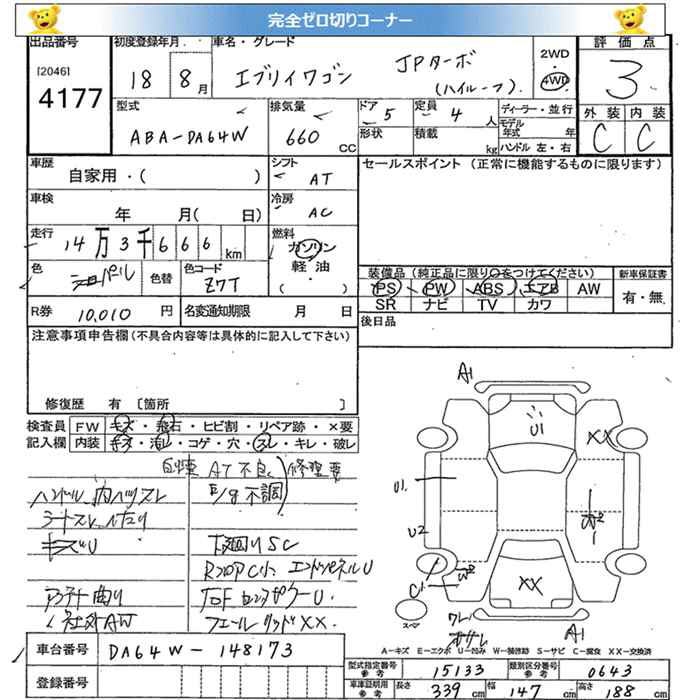 完全ゼロ切りコーナー
出品番号 初度登録年月 車名・グレード 2WD 評価点
[2046] 4177 18 8月 エブリイワゴン JPターボ (ハイルーフ) 4WD 3
型式 排気量 ドア 5 定員 4人 ディーラー・並行 外装 内装
ABA-DA64W 660 CC 形状 積載 kg モデル年式 年 C C
ハンドル 左・右
車歴 シフト セールスポイント (正常に機能するものに限ります)
自家用・( ) AT
車検 冷房
年 月( 日) AC
走行 燃料
14万3千666km ガソリン
軽油
( )
色 シロパール 色替 色コード Z7T
装備品 (純正品に限り○をつけてください) 新車保証書
PS PW ABS エアB AW 有・無
SR ナビ TV カワ
R券 10,010円 名変通知期限 月 日
後日品
注意事項申告欄 (不具合内容等は具体的に記入して下さい)
修復歴 有 [箇所
検査員 FW キズ・飛石・ヒビ割・リペア跡・×要
記入欄 内装 キズ・汚レ・コゲ・穴・スレ・キレ・破レ
AT不良 修理要
E/g不調
ハンドル
シートスレ
キズU
下廻りSC
RフロアC小 エンドパネルU
曲り
社外AW
XX
A1
U1
XX
U1
U2
W2
C1
W2
XX
スペア
ワレ
A1
A-キズ E-エクボ U-凹み W-補修跡 S-サビ C-腐食 XX-交換済
車台番号 DA64W-148173
登録番号
型式指定番号 参考 15133 類別区分番号 参考 0643
車庫証明用 参考 長さ 339cm 幅 147cm 高さ 188cm